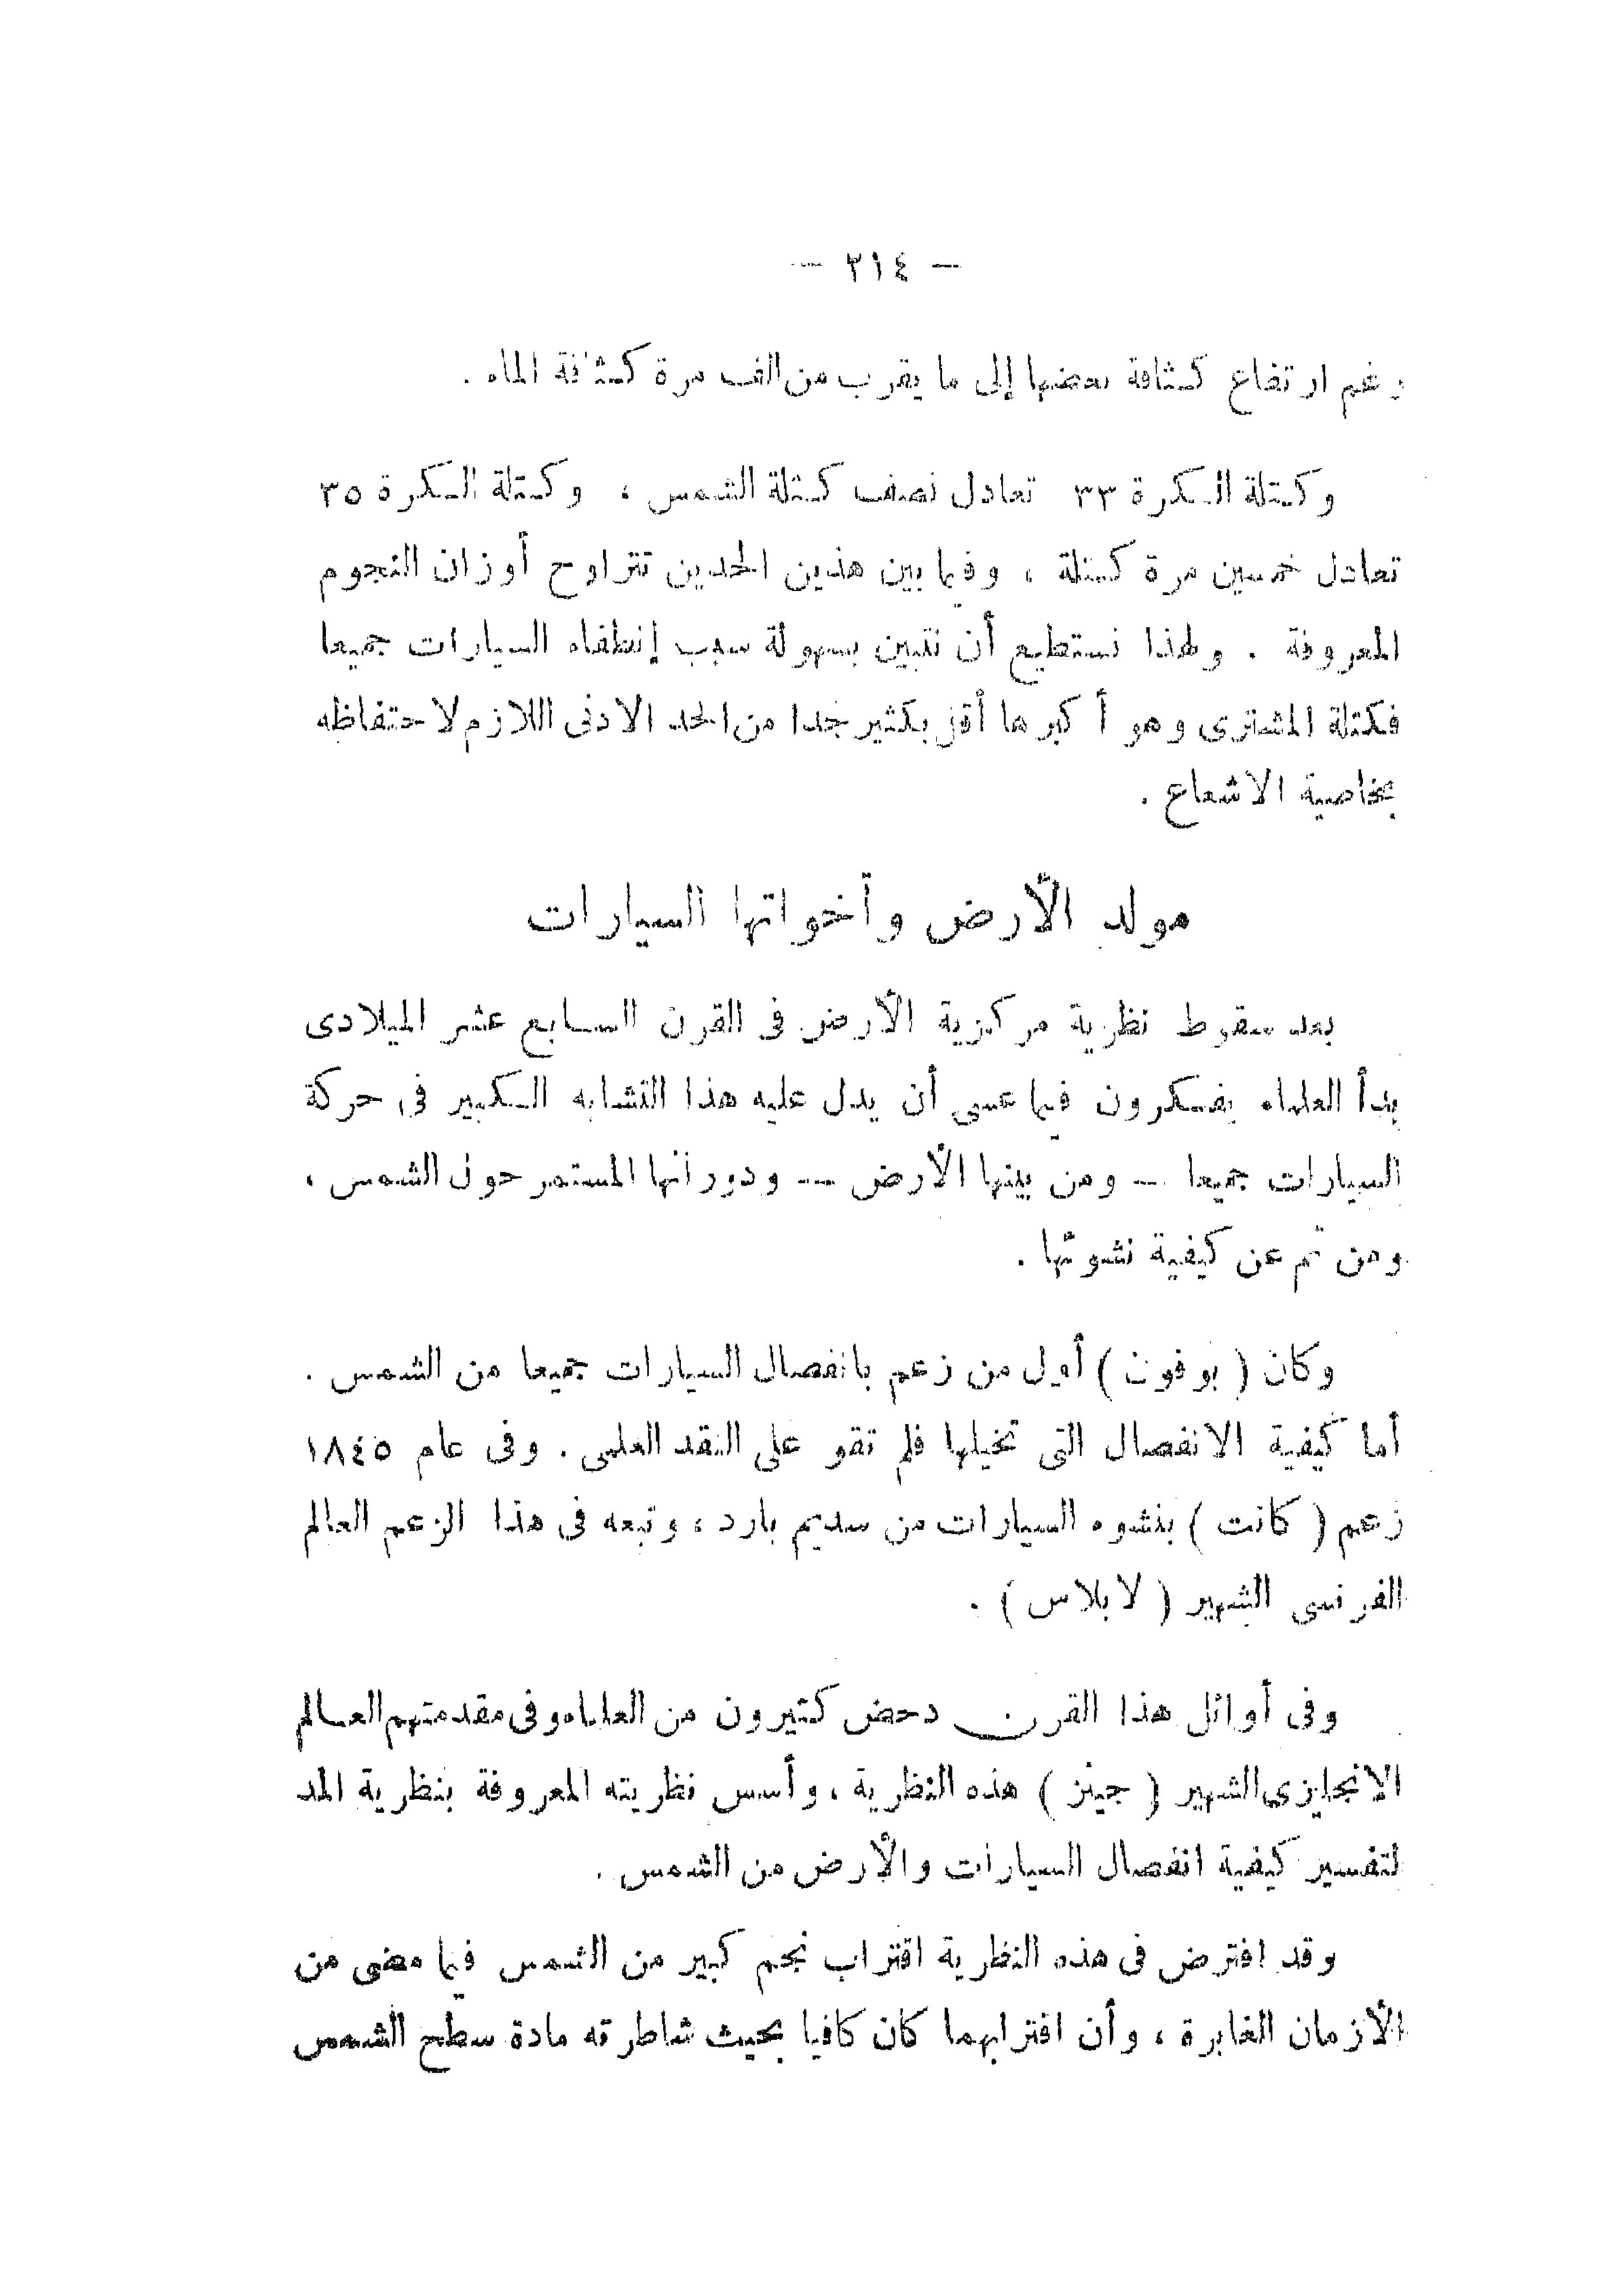 — ٢١٤ —
رغم ارتفاع كثافة بعضها إلى ما يقرب من الف مرة كثافة الماء .
وكتلة الكرة ٣٣ تعادل نصف كتلة الشمس ، وكتلة الكرة ٣٥
تعادل خمسين مرة كتلة ، وفيما بين هذين الحدين تتراوح أوزان النجوم
المعروفة . ولهذا نستطيع أن نتبين بسهولة سبب إنطفاء السيارات جميعا
فكتلة المشترى وهو أكبرها أقل بكثير جدا من الحد الادنى اللازم لاحتفاظه
بخاصية الاشعاع .
مولد الأرض وأخواتها السيارات
بعد سقوط نظرية مركزية الأرض فى القرن السابع عشر الميلادى
بدأ العلماء يفكرون فيما عسى أن يدل عليه هذا التشابه الكبير فى حركة
السيارات جميعا — ومن بينها الأرض — ودورانها المستمر حول الشمس ،
ومن ثم عن كيفية نشوئها .
وكان ( بوفون ) أول من زعم بانفصال السيارات جميعا من الشمس .
أما كيفية الانفصال التى تخيلها فلم تقو على النقد العلمى . وفى عام ١٨٤٥
زعم ( كانت ) بنشوء السيارات من سديم بارد ، وتبعه فى هذا الزعم العالم
الفرنسى الشهير ( لابلاس ) .
وفى أوائل هذا القرن دحض كثيرون من العلماء وفى مقدمتهم العالم
الانجليزى الشهير ( جينز ) هذه النظرية ، وأسس نظريته المعروفة بنظرية المد
لتفسير كيفية انفصال السيارات والأرض من الشمس .
وقد افترض فى هذه النظرية اقتراب نجم كبير من الشمس فيما مضى من
الأزمان الغابرة ، وأن اقترابهما كان كافيا بحيث شاطرته مادة سطح الشمس